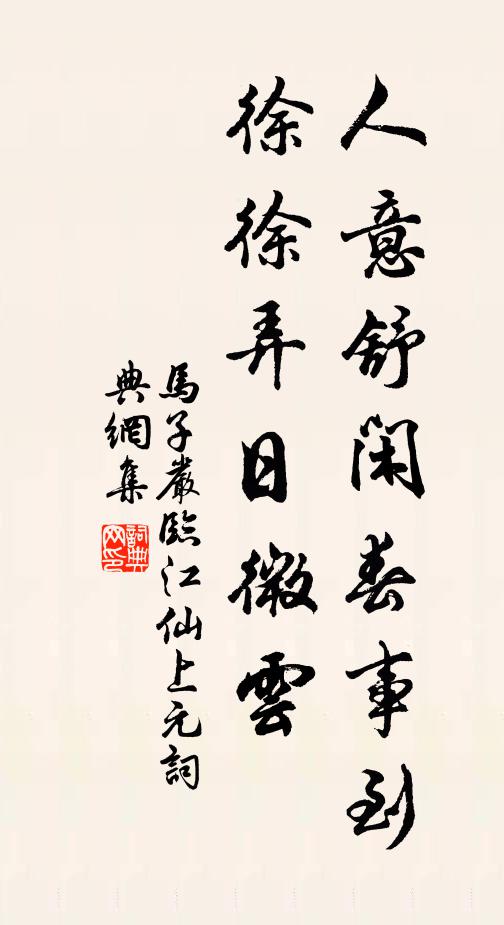 人意舒閑春事到
徐徐弄日微雲
馬子嚴臨江仙上元詞
典網集
詞典網印